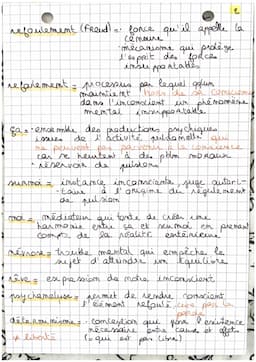 2
refoulement (Freud) = force qu'il appelle la
censure
mécanisme qui protège
l'esprit des forces
insupportables
refoulement = processus par lequel qqun
maintient hors de sa conscience
dans l'inconscient un phénomène
mental insupportable
ça = ensemble des productions psychiques
issues de l'activité pulsionnelle qui
ne peuvent pas parvenir à la conscience
car se heurtent à des moraux
= réservoir de pulsions
surmoi = instance inconsciente, juge autori-
taire à l'origine du refoulement
de pulsion
moi = médiateur qui tente de créer une
harmonie entre ça et surmoi en prenant
compte de la réalité extérieure
névrose = trouble mental qui empêche le
sujet d'atteindre un équilibre
rêve = expression de notre inconscient
psychanalyse = permet de rendre conscient
l'élément refoulé par la
parole
déterminisme = conception que l'existence
nécessaire entre cause et effet
≠ liberté (= qui est par libre)